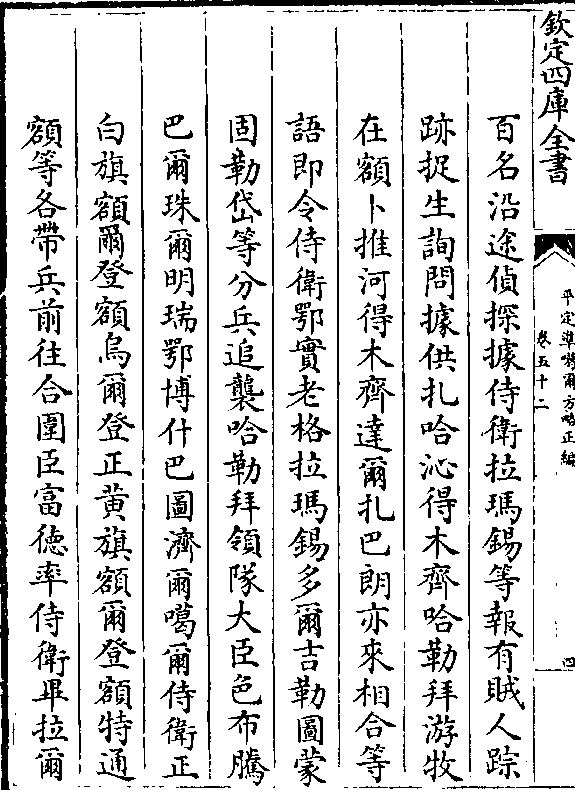 欽定四庫全書
平定準噶爾方略正編
卷五十二
四
百名沿途偵探據侍衛拉瑪錫等報有賊人踪
跡捉生詢問據供扎哈沁得木齊哈勒拜游牧
在額卜推河得木齊達爾扎巴朗亦來相合等
語即令侍衛鄂實老格拉瑪錫多爾吉勒圖蒙
固勒岱等分兵追襲哈勒拜領隊大臣色布騰
巴爾珠爾明瑞鄂博什巴圖濟爾噶爾侍衛正
白旗額爾登額烏爾登正黄旗額爾登額特通
額等各帶兵前往合圍臣富德率侍衛畢拉爾